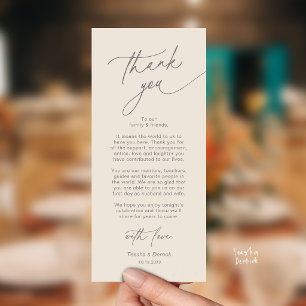 thank
you
To our
family & friends,
It means the world to us to
have you here. Thank you for
all the support, encouragement,
advice, love and laughter you
have contributed to our lives.
You are our mentors, teachers,
guides and favorite people in
the world. We are so glad that
you are able to join us on our
first day as husband and wife.
We hope you enjoy tonight's
celebration and those we'll
share for years to come.
with love,
Taesha & Derrick